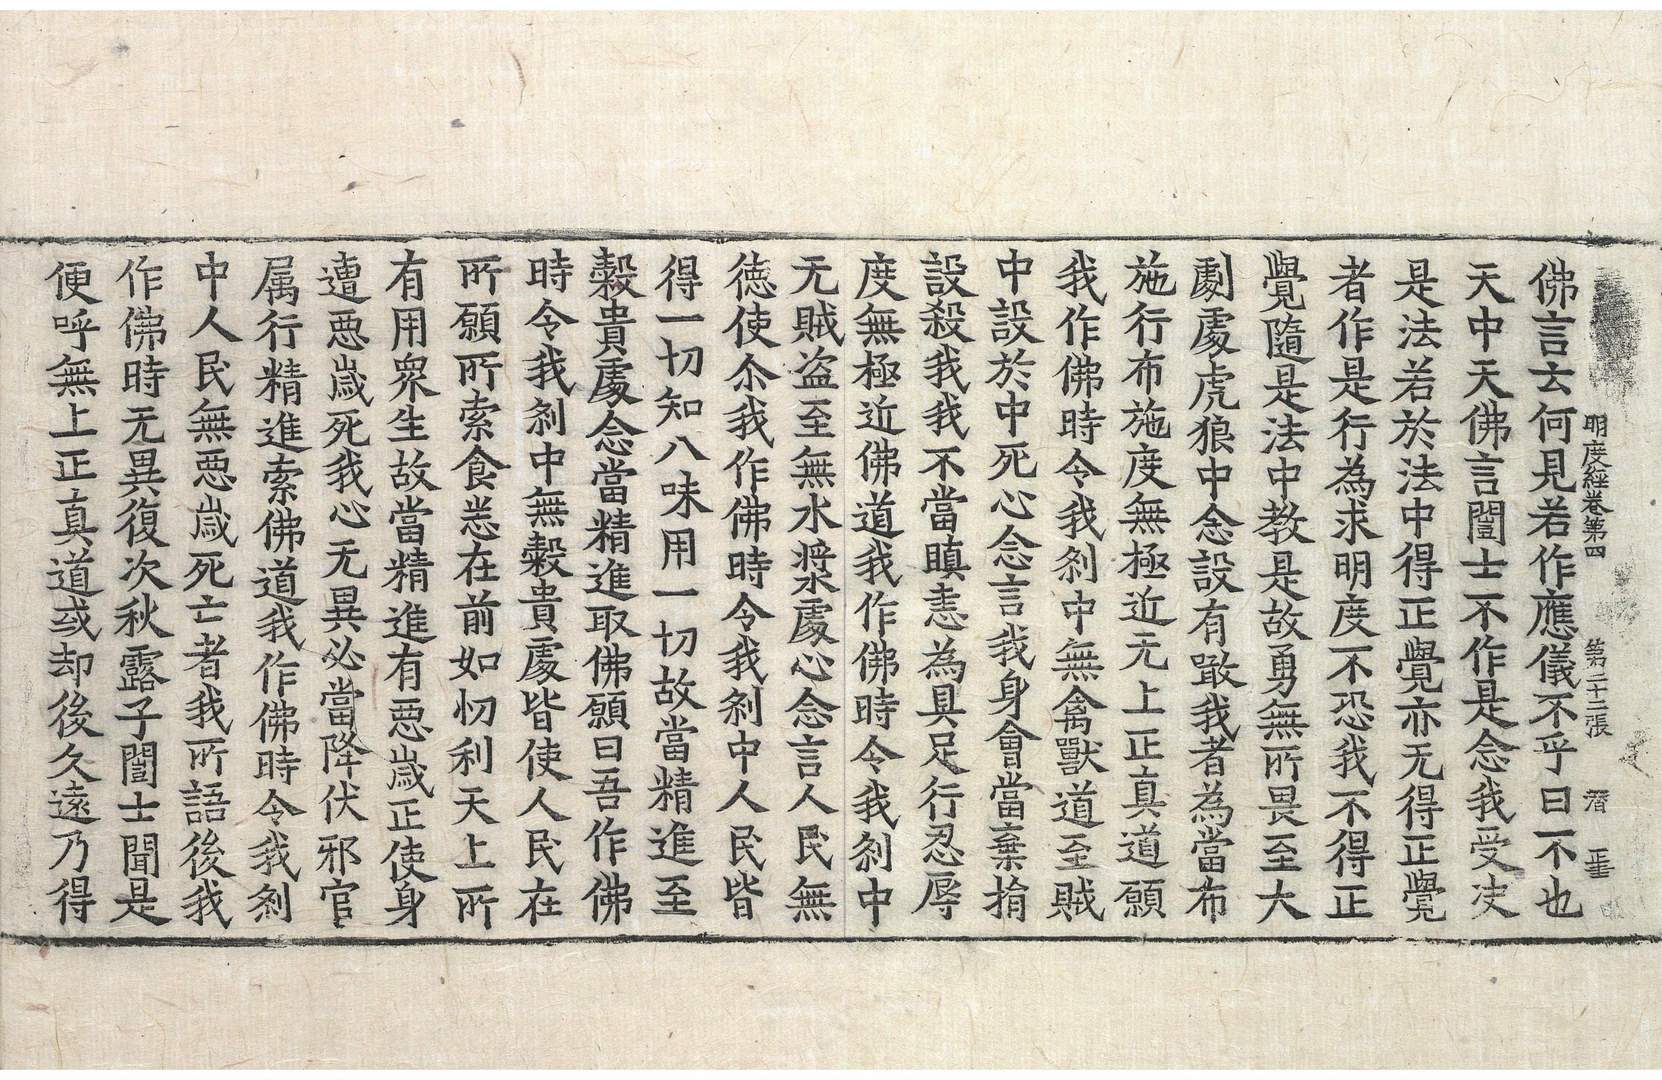 明度經卷第四 第二十二張 潛
佛言云何見若作應儀不乎曰不也
天中天佛言闓士不作是念我受决
是法若於法中得正覺亦无得正覺
者作是行為求明度不恐我不得正
覺隨是法中教是故勇無所畏至大
劇處虎狼中念設有噉我者為當布
施行布施度無極近无上正真道願
我作佛時令我刹中無禽獸道至賊
中設於中死心念言我身會當棄捐
設殺我我不當瞋恚為具足行忍辱
度無極近佛道我作佛時令我刹中
无賊盜至無水漿處心念言人民無
德使尒我作佛時令我刹中人民皆
得一切知八味用一切故當精進至
穀貴處念當精進取佛願曰吾作佛
時令我刹中無穀貴處皆使人民在
所願所索食悉在前如忉利天上所
有用眾生故當精進有惡歲正使身
遭惡歲死我心无異必當降伏邪官
属行精進索佛道我作佛時令我刹
中人民無惡歲死亡者我所語後我
作佛時无異復次秋露子闓士聞是
便呼無上正真道或却後久遠乃得